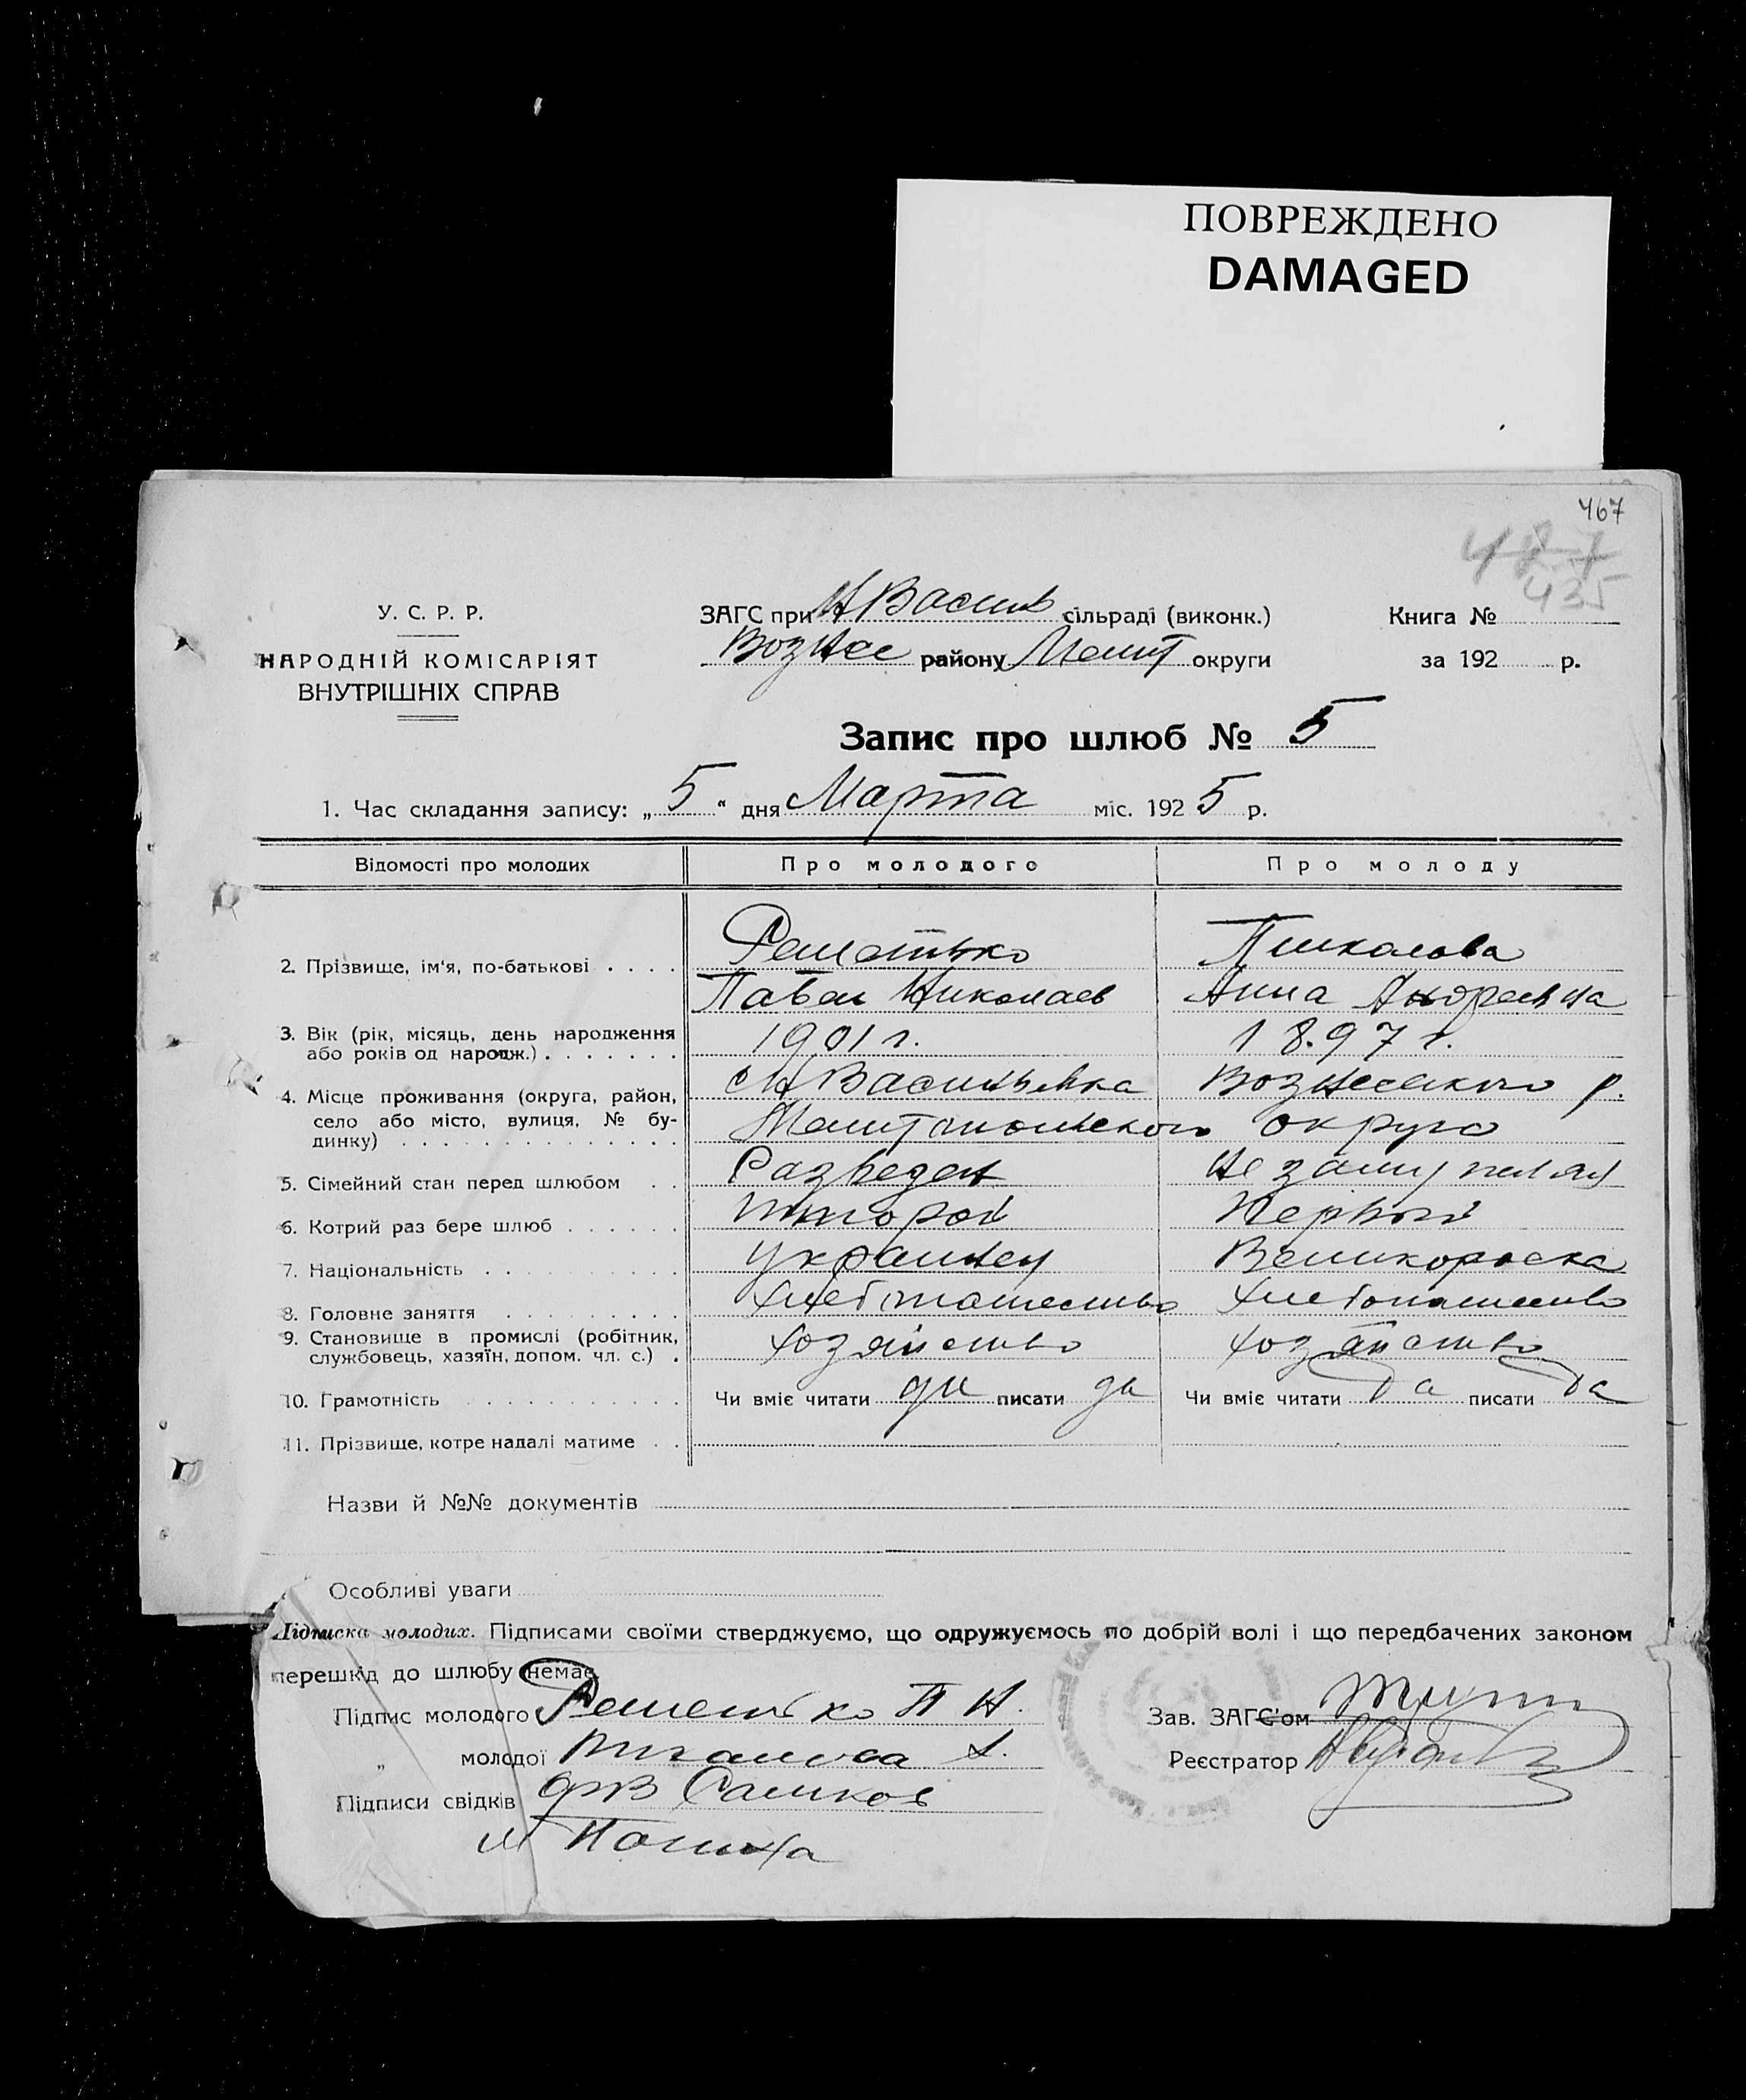 ПОВРЕЖДЕНО
DAMAGED
467
435
У. С. Р. Р.
НАРОДНІЙ КОМІСАРІЯТ
ВНУТРІШНІХ СПРАВ
ЗАГС при Н Васил сільраді (виконк.)
Вознес району Мелит округи
Книга №
за 192 р.
Запис про шлюб № 5
1. Час складання запису: „5“ дня Марта міс. 1925 р.
Відомості про молодих Про молодого Про молоду
2. Прізвище, ім‘я, по-батькові Решетько
Павел Николаев Анна Андреевна
3. Вік (рік, місяць, день народження або років од народж.) 1901 г. 1897 г.
4. Місце проживання (округа, район, село або місто, вулиця, № будинку) с Н Васильевка Вознесенского р.
Мелитопольского округа
5. Сімейний стан перед шлюбом Разведен Не замужняя
6. Котрий раз бере шлюб Второй Первый
7. Національність Украинец Великороска
8. Головне заняття Хлебопашество Хлебопашество
9. Становище в промислі (робітник, службовець, хазяїн, допом. чл. с.) хозяйство хозяйство
10. Грамотність Чи вміє читати да писати да Чи вміє читати да писати да
11. Прізвище, котре надалі матиме
Назви й №№ документів
Особливі уваги
Підписка молодих. Підписами своїми стверджуємо, що одружуємось по добрій волі і що передбачених законом
перешкід до шлюбу немає.
Підпис молодого Решетько П Н.
„ молодої А.
Підписи свідків Сашков
Зав. ЗАГС‘ом
Реєстратор